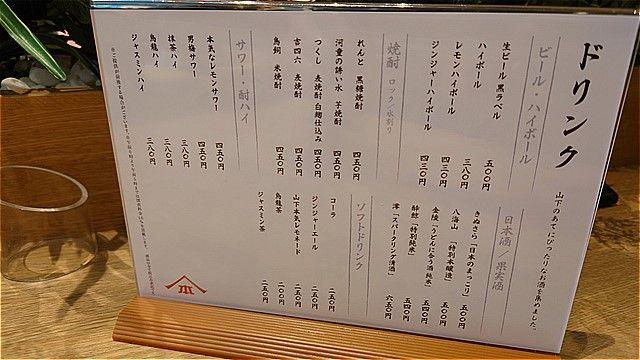 ドリンク
山下のあてにぴったりなお酒を集めました。
ビール・ハイボール
生ビール 黒ラベル 五〇〇
ハイボール 三八〇
レモンハイボール 四三〇
ジンジャーハイボール 四三〇
焼酎 ロック/水割り
れんと 黒糖焼酎 四五〇
河童の誘い水 芋焼酎 四五〇
つくし 麦焼酎 白麹仕込み 四五〇
吉四六 麦焼酎 四五〇
鳥飼 米焼酎 四五〇
サワー・酎ハイ
本気なレモンサワー 四五〇
男梅サワー 四五〇
抹茶ハイ 三八〇
烏龍ハイ 三八〇
ジャスミンハイ 三八〇
日本酒/果実酒
きぬさら「日本のまっこり」 五〇〇
八海山 「特別本醸造」 五〇〇
金陵「うどんに合う酒 純米」 五四〇
酔鯨「特別純米」 五四〇
澪「スパークリング清酒」 六五〇
ソフトドリンク
コーラ 二五〇
ジンジャーエール 二五〇
山下本気レモネード 二五〇
烏龍茶 二〇〇
ジャスミン茶 二五〇